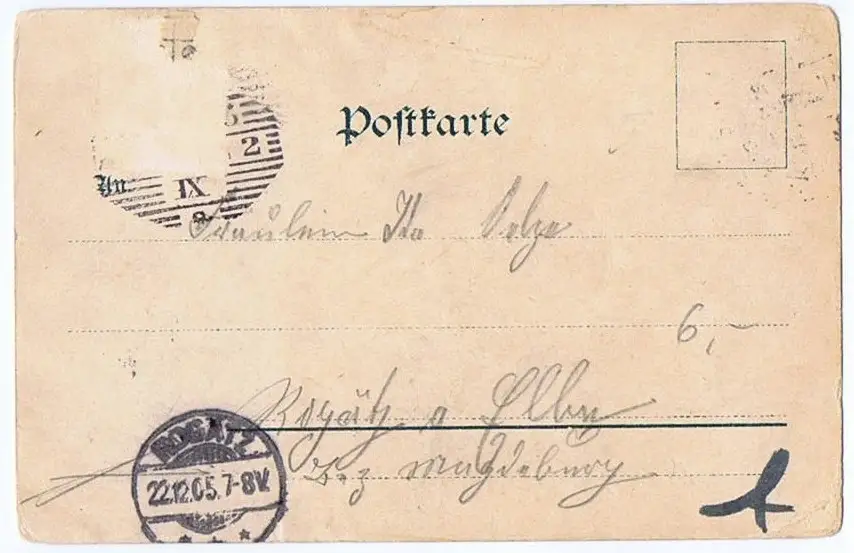 Postkarte
An
2
IX
a
Fräulein Ita
6,-
Rogätz a Elbe
Bez Magdeburg
ROGÄTZ
22.12.05.7-8V.